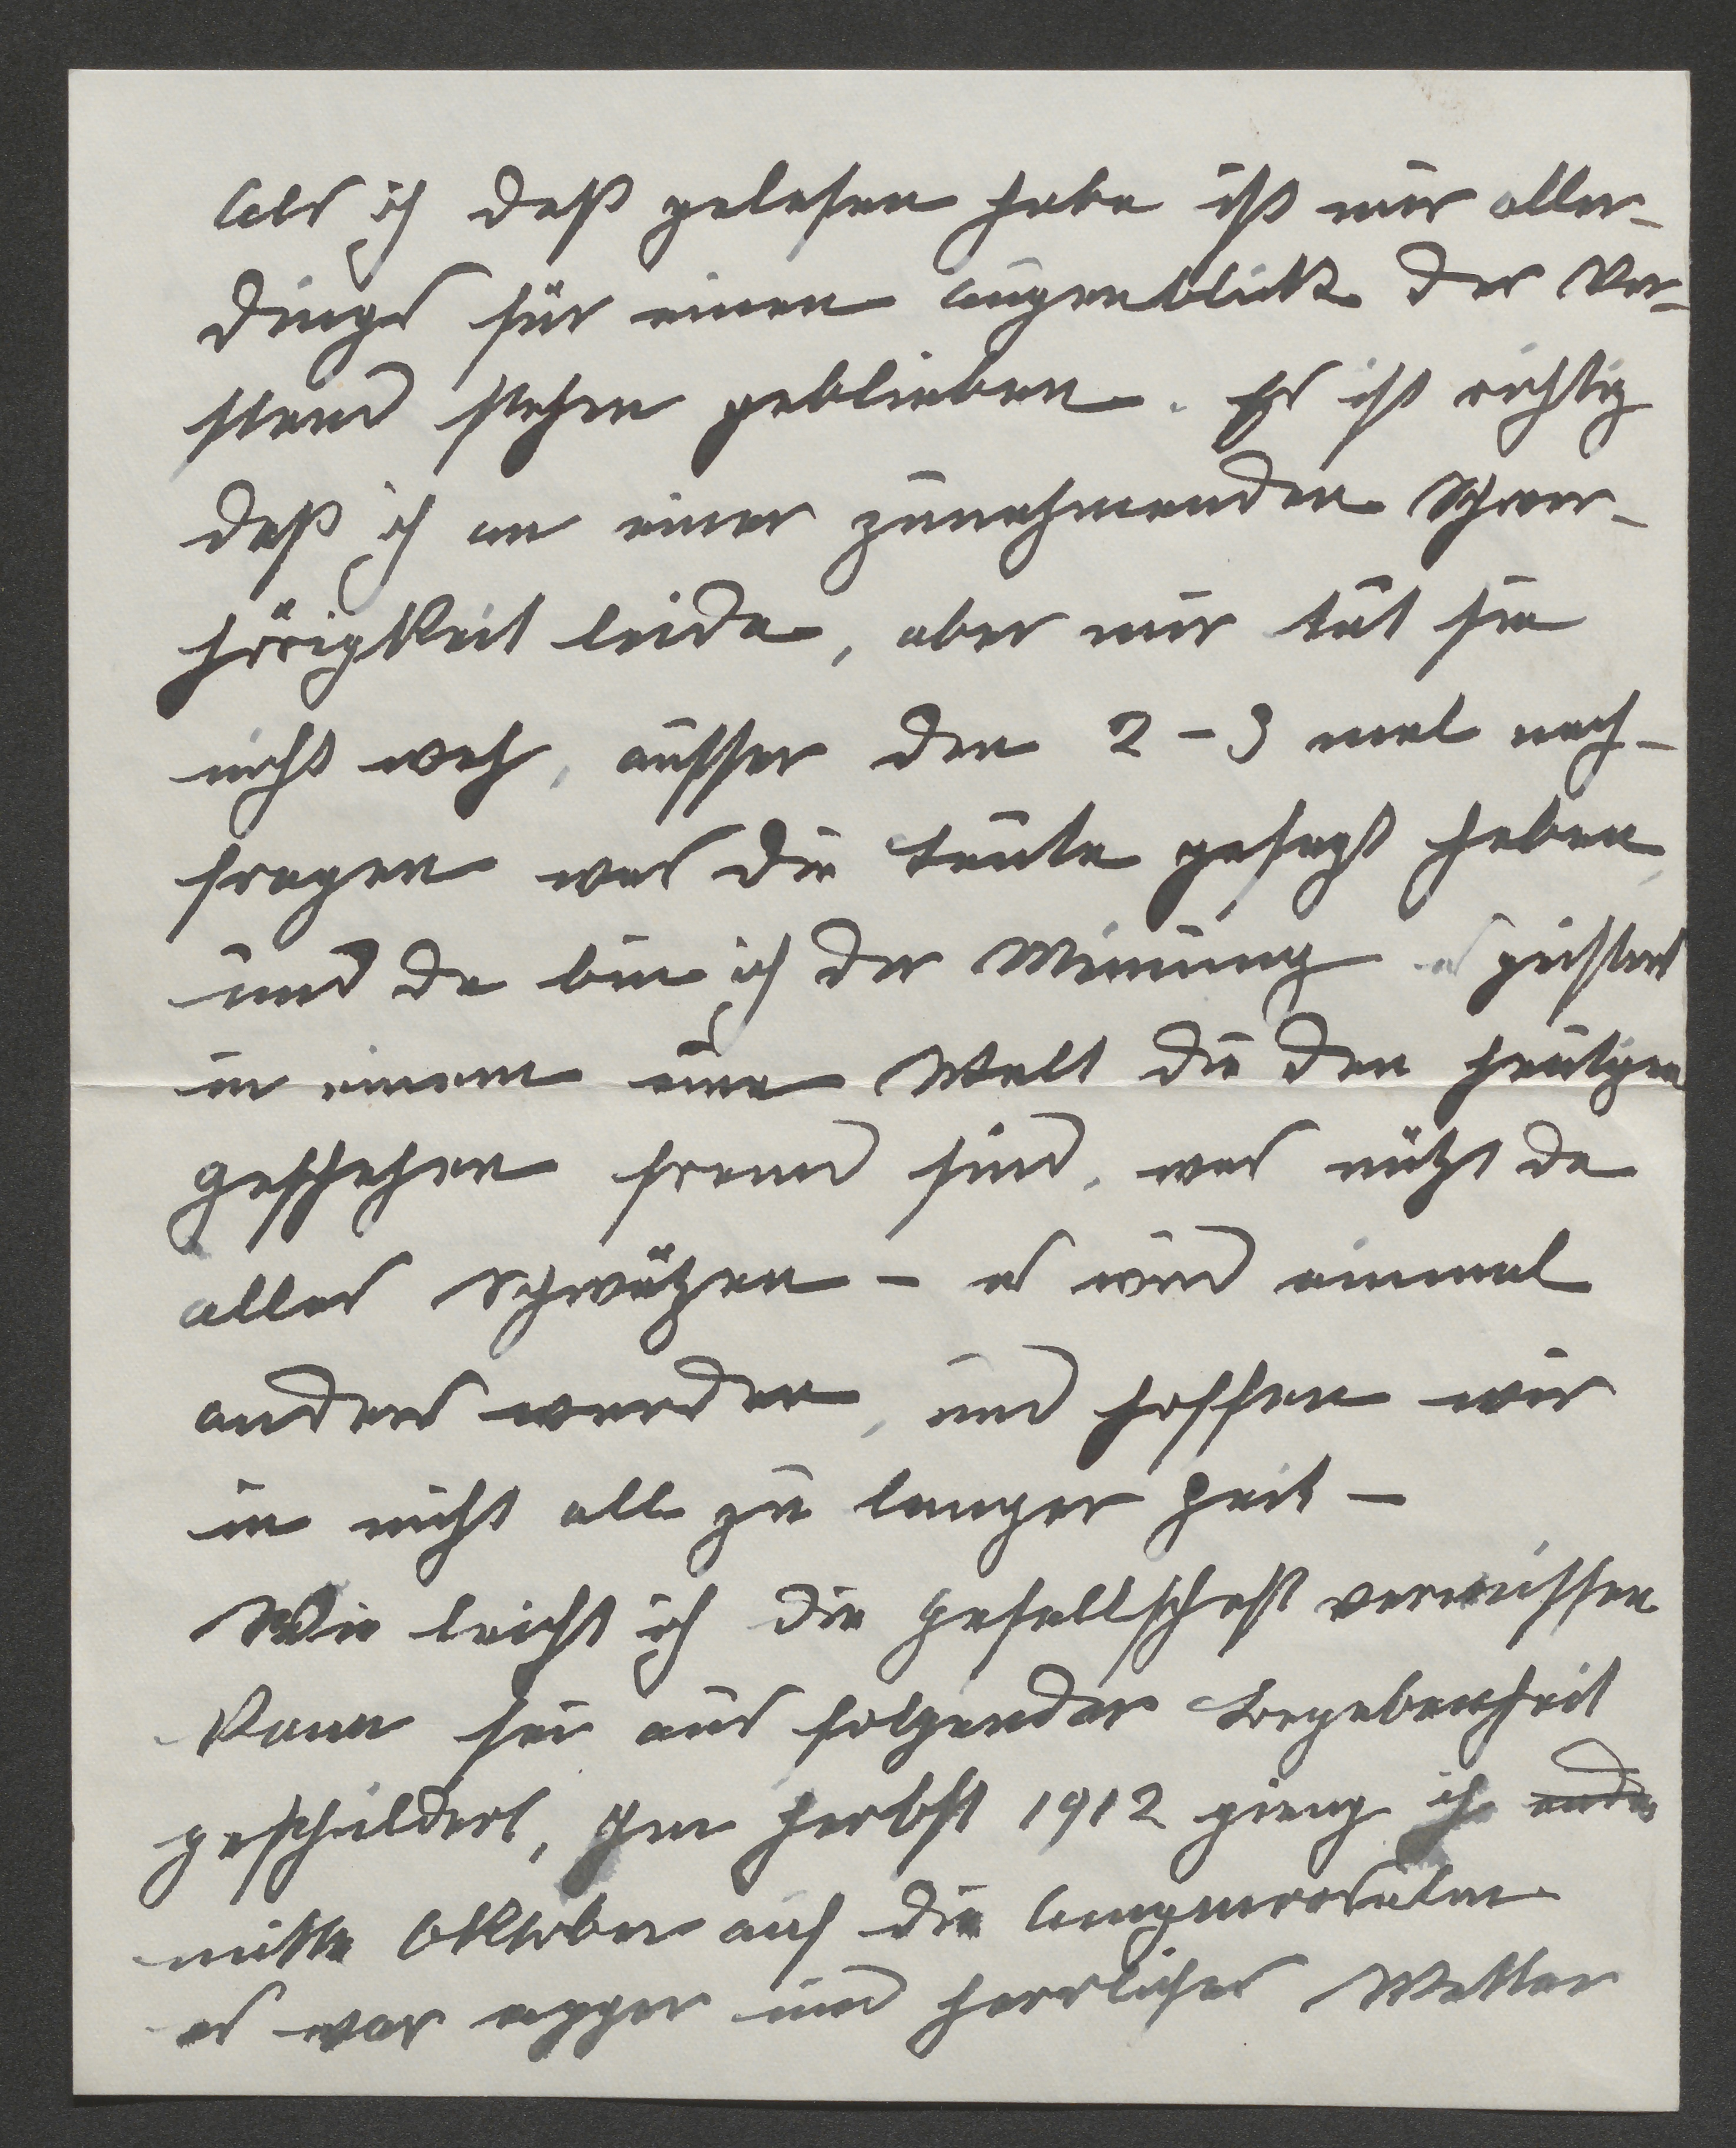 Als ich daß gelesen habe ist mir aller-
dings für einen Augenblick der Ver-
stand stehen geblieben. Es ist richtig
daß ich an einer zunehmenden Schwer-
hörigkeit leide, aber mir tut sie
nicht weh, ausser den 2-3 mal nach-
fragen was die Leute gesagt haben,
und da bin ich der Meinung es geistert
in einem eine Welt die den heutigen
Geschehen fremd sind, was nützt da
alles Schwätzen - es wird einmal
anders werden, und hoffen wir
in nicht all zu langer Zeit -
Wie leicht ich die Gesellschaft vermissen
kann sei aus folgender Begebenheit
geschildert, Im Herbst 1912 gieng ich ende
mitte Oktober auf die
es war und herrliches Wetter